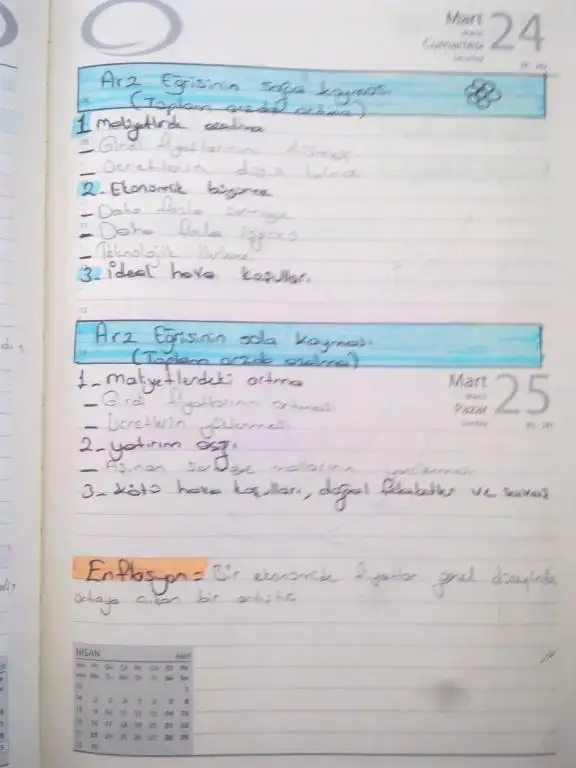 Mart
Cumartesi
24
Arz Eğrisinin sağa kayması
(Toplam arzda artma)
1 maliyetlerde azalma
- Girdi fiyatlarının düşmesi
- Ücretlerin
2. Ekonomik büyüme
- Daha fazla sermaye
- Daha fazla işgücü
- Teknolojik ilerleme
3. İdeal hava koşulları.
Arz Eğrisinin sola kayması.
(Toplam arzda azalma)
1- maliyetlerdeki artma
Mart
Pazar
25
- Girdi fiyatlarının artması
- Ücretlerin yükselmesi
2- yatırım
- Aşınan mallarının
3- kötü hava koşulları, doğal felaketler ve savaş
Enflasyon = Bir ekonomide fiyatlar genel düzeyinde
ortaya çıkan bir artıştır.
NİSAN April